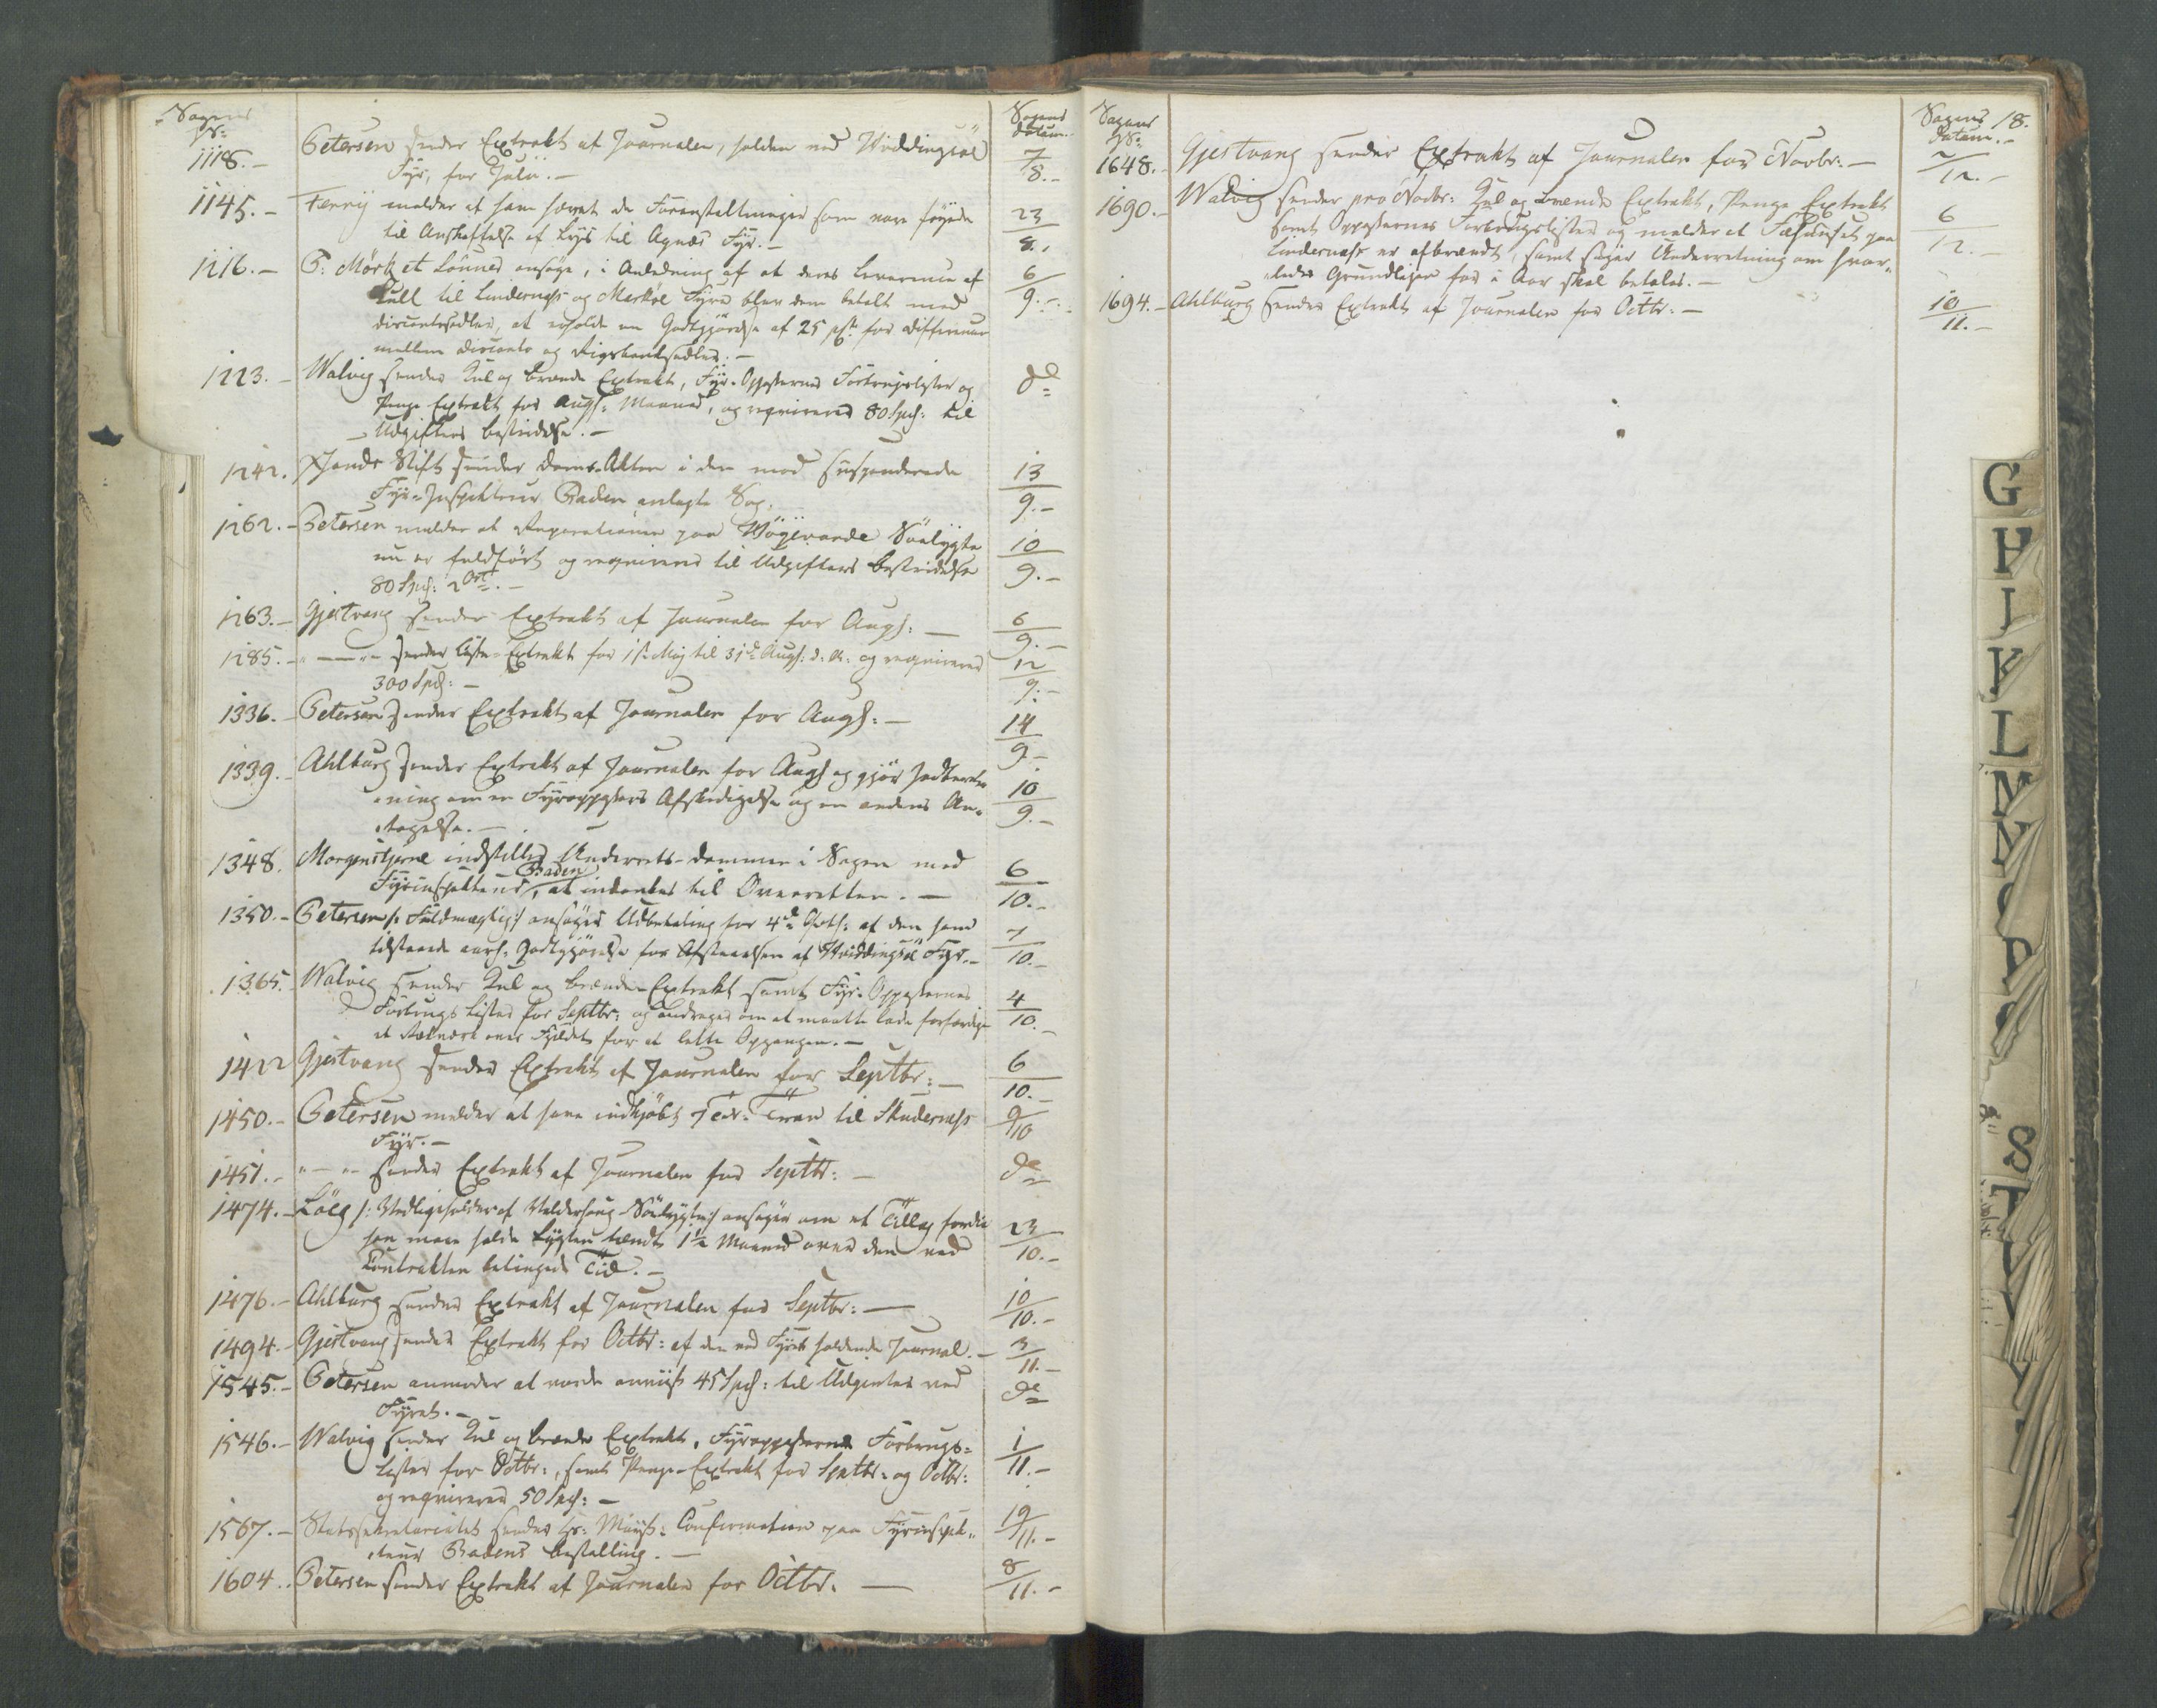 Sagens
No
Sagens
datum.
1118.- Petersen sender Extrakt af Journalen, holden ved Hviddingsöe 7/8.-
Fyr, for Julii.-
1145.- Ferry melder at have havet de Foranstaltninger som vare föyede 23/8.
til Anskaffelse af Lys til Agnæs Fyr.-
1216.- P: Mörk et Lönnes ansöge, i Anledning af at deres Leverance af 6/9.-
Kull til Lindernæs og Marköe Fyre blev dem betalt med
discontosedler, at erholde en Godtgjörelse af 25 pCt. for difference
mellem disconto og Rigsbanksedler.-
1223.- Walvig sender Kul og Brænde Extrakt, Fyr-Oppasternes Forbrugslister og do
Penge Extrakt for Augs: Maaned, og requirerer 80 Spd: til
Udgifters bestridelse.-
1242. Xsands Stift sender Doms-Akten i den mod suspenderede 13/9.-
Fyr-Inspekteur Baden anlagte Sag.
1262.- Petersen melder at Reparationen paa Högevarde Söelygte 10/9.-
nu er fuldfört og requirerer til Udgifters bestridelse
80 Spd: 2 Ort.-
1263.- Gjestvang sender Extrakt af Journalen for Augs:- 6/9.-
1285.- " — " sender Liste-Extrakt for 1st Maj til 31d Augs: d. A. og requirerer 12/9.-
300 Spd:-
1336.- Petersen sender Extrakt af Journalen for Augs:- 14/9.-
1339.- Ahlburg sender Extrakt af Journalen for Augs og gjör Indberet- 10/9.-
ning om en Fyroppasters Afskedigelse og en andens An-
tagelse.-
1348. Morgenstjerne indstiller Underrets-Dommen i Sagen mod 6/10.-
Fyrinspekteur Baden, at indankes til Overretten.-
1350.- Petersen /: Fuldmægtig:/ ansöger Udbetaling for 4de Qvart: af den ham 7/10.-
tilstaaede aarl: Godtgjörelse for Afstaaelsen af Hviddingsöe Fyr.-
1365.- Walvig sender Kul og Brænde-Extrakt samt Fyr-Oppasternes 4/10.-
Forbrugs Lister for Septbr: og andrager om at maatte lade forfærdige
et Rækverk over Fjeldet for at lette Opgangen.-
1422 Gjestvang sender Extrakt af Journalen for Septbr:- 6/10.-
1450.- Petersen melder at have indkjöbt 7 Tdr. Tran til Skudesnæs 9/10
Fyr.-
1451.- " — " sender Extrakt af Journalen for Septbr:- do
1474.- Löeg /: Vedligeholder af Valderhoug Söelygte:/ ansöger om et Tillæg fordi 23/10.-
han maae holde Lygten tændt 1½ Maaned over den ved
Contrakten betingede Tid.-
1476.- Ahlburg sender Extrakt af Journalen for Septbr:- 10/10.-
1494.- Gjestvang sender Extrakt for Octbr: af den ved Fyret holdende Journal.- 3/11.-
1545.- Petersen anmoder at vorde anviist 45 Spd: til Udgivter ved do
Fyret.-
1546.- Walvig sender Kul og Brænde Extrakt, Fyroppasternes Forbrugs- 1/11.-
Lister for Octbr:, samt Penge-Extrakt for Septbr: og Octbr:
og requirerer 50 Spd:-
1567.- Statssekretariatet sender Hs: Mayst: Confirmation paa Fyrinspek- 19/11.-
teur Badens bestalling.-
1604.- Petersen sender Extrakt af Journalen for Octbr.- 8/11.-
Sagens
No
Sagens
datum.-
18.
1648.- Gjestvang sender Extrakt af Journalen for Novbr:- 2/12.-
1690.- Walvig sender pro Novbr: Kul og Brænde Extrakt, Penge Extrakt 6/12.-
samt Oppasternes Forbrugslister og melder at Fæhuuset paa
Lindernæs er afbrændt, samt söger Underretning om hvor-
ledes Grundleien for i Aar skal betales.-
1694.- Ahlburg sender Extrakt af Journalen for Octbr:- 10/11.-
G
H
I
K
L
M
N
O
P
S
T